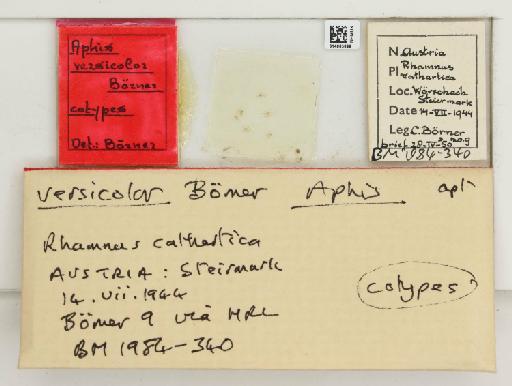 Aphis
versicolor
Börner
cotypes
Det: Börner
N. Austria
Pl Rhamnus
cathartica
Loc. Wörschach
Steiermark
Date 14-VII-1944
Leg C. Börner
brief 28-IV-50
BM 1984-340
versicolor Börner Aphis apt
Rhamnus cathartica
AUSTRIA: Steirmark
14.vii.1944
cotypes
Börner 9 via HRL
BM 1984-340